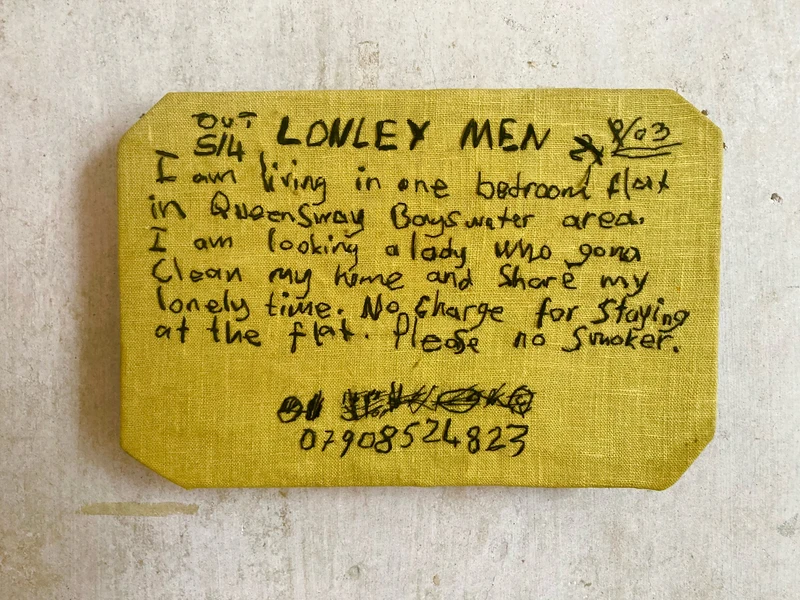 OUT LONLEY MEN 8/03
5/4
I am living in one bedroom flat
in QueenSway Bayswater area.
I am looking a lady who gona
Clean my home and Share my
lonely time. No Charge for Staying
at the flat. Please no Smoker.
07908524823